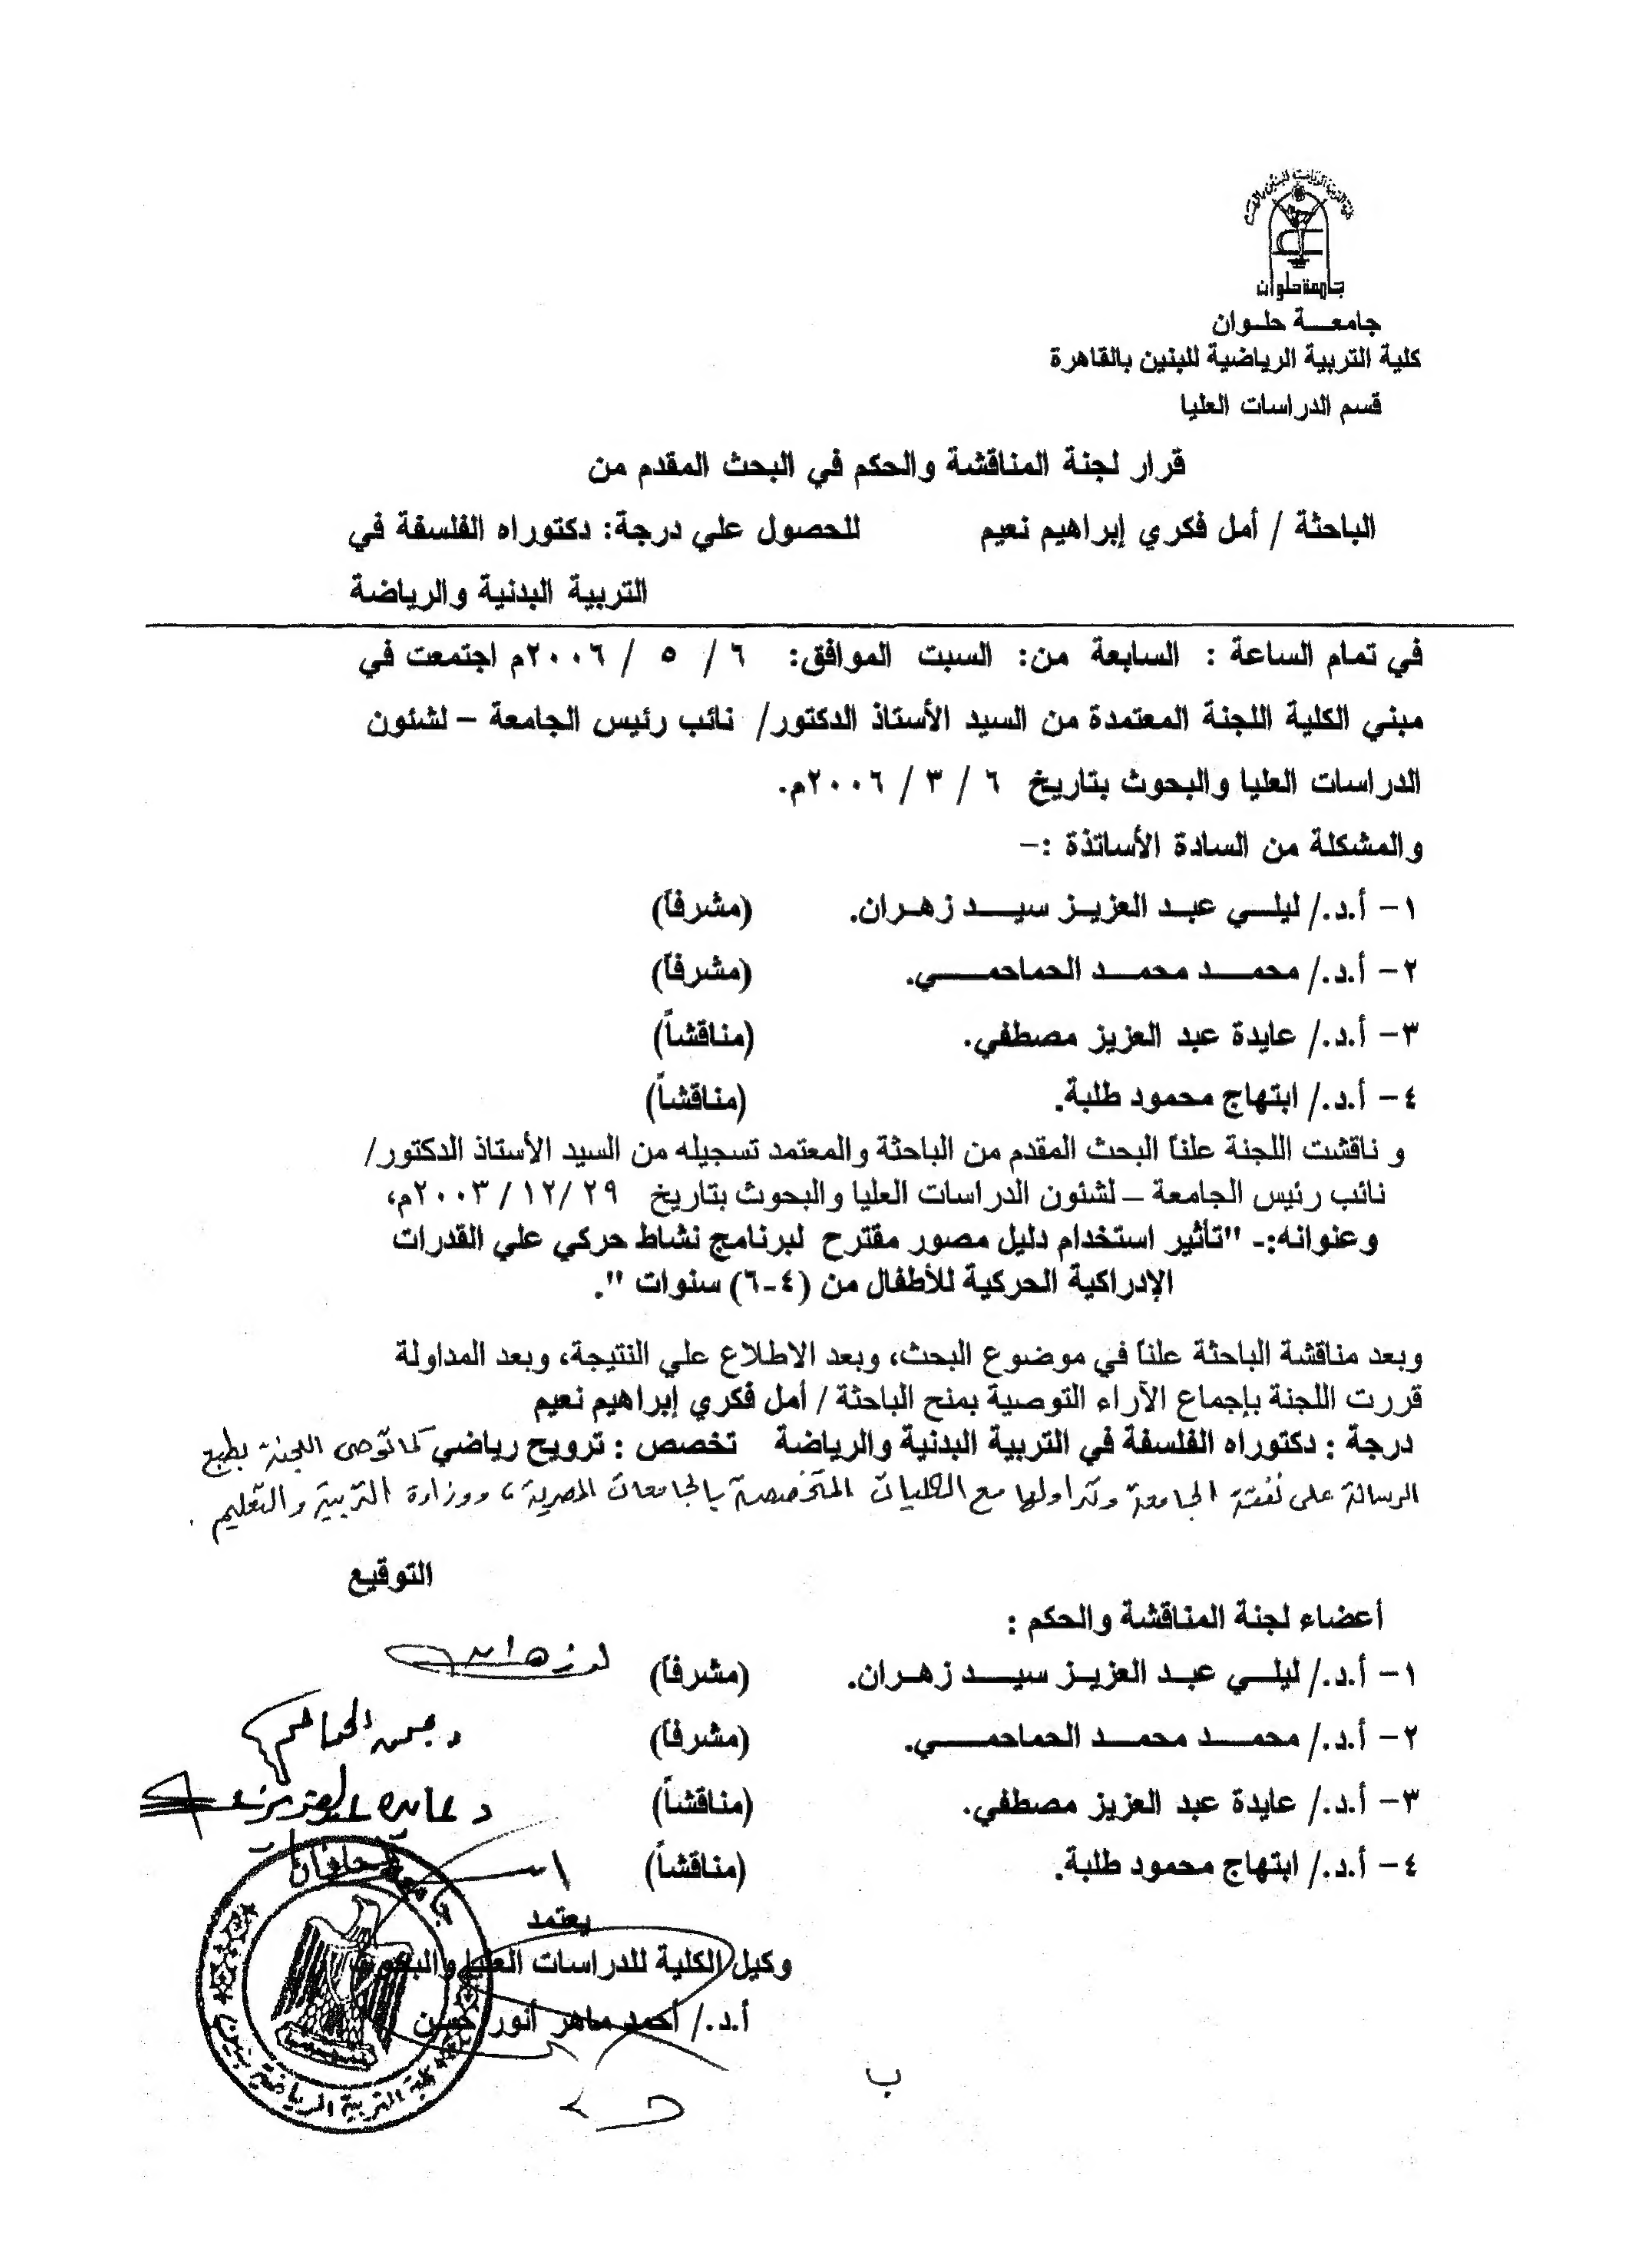 جامعة حلوان
جامعـــة حلـوان
كلية التربية الرياضية للبنين بالقاهرة
قسم الدراسات العليا
قرار لجنة المناقشة والحكم في البحث المقدم من
الباحثة / أمل فكري إبراهيم نعيم للحصول علي درجة: دكتوراه الفلسفة في
التربية البدنية والرياضة
في تمام الساعة : السابعة من: السبت الموافق: ٦ / ٥ / ٢٠٠٦م اجتمعت في
مبني الكلية اللجنة المعتمدة من السيد الأستاذ الدكتور/ نائب رئيس الجامعة – لشئون
الدراسات العليا والبحوث بتاريخ ٦ / ٣ / ٢٠٠٦م.
والمشكلة من السادة الأساتذة :–
١– أ.د./ ليلـــي عبـد العزيـز سيـــد زهـران. (مشرفاً)
٢– أ.د./ محمـــد محمـــد الحماحمـــــي. (مشرفاً)
٣– أ.د./ عايدة عبد العزيز مصطفي. (مناقشاً)
٤– أ.د./ ابتهاج محمود طلبة. (مناقشاً)
و ناقشت اللجنة علناً البحث المقدم من الباحثة والمعتمد تسجيله من السيد الأستاذ الدكتور/
نائب رئيس الجامعة – لشئون الدراسات العليا والبحوث بتاريخ ٢٩ /١٢ / ٢٠٠٣م،
وعنوانه:- "تأثير استخدام دليل مصور مقترح لبرنامج نشاط حركي علي القدرات
الإدراكية الحركية للأطفال من (٤-٦) سنوات ".
وبعد مناقشة الباحثة علناً في موضوع البحث، وبعد الاطلاع علي النتيجة، وبعد المداولة
قررت اللجنة بإجماع الآراء التوصية بمنح الباحثة / أمل فكري إبراهيم نعيم
درجة : دكتوراه الفلسفة في التربية البدنية والرياضة تخصص : ترويح رياضي كما توصى اللجنة بطبع
الرسالة على نفقة الجامعة وتداولها مع الكليات المتخصصة بالجامعات المصرية، ووزارة التربية والتعليم .
التوقيع
أعضاء لجنة المناقشة والحكم :
١– أ.د./ ليلـــي عبـد العزيـز سيـــد زهـران. (مشرفاً)
٢– أ.د./ محمـــد محمـــد الحماحمـــــي. (مشرفاً)
٣– أ.د./ عايدة عبد العزيز مصطفي. (مناقشاً) د عايدة عبدالعزيز
٤– أ.د./ ابتهاج محمود طلبة. (مناقشاً)
يعتمد
وكيل الكلية للدراسات العليا والبحوث
أ.د./ أحمد ماهر أنور حسن
جامعة حلوان
كلية التربية الرياضية بنين
ب